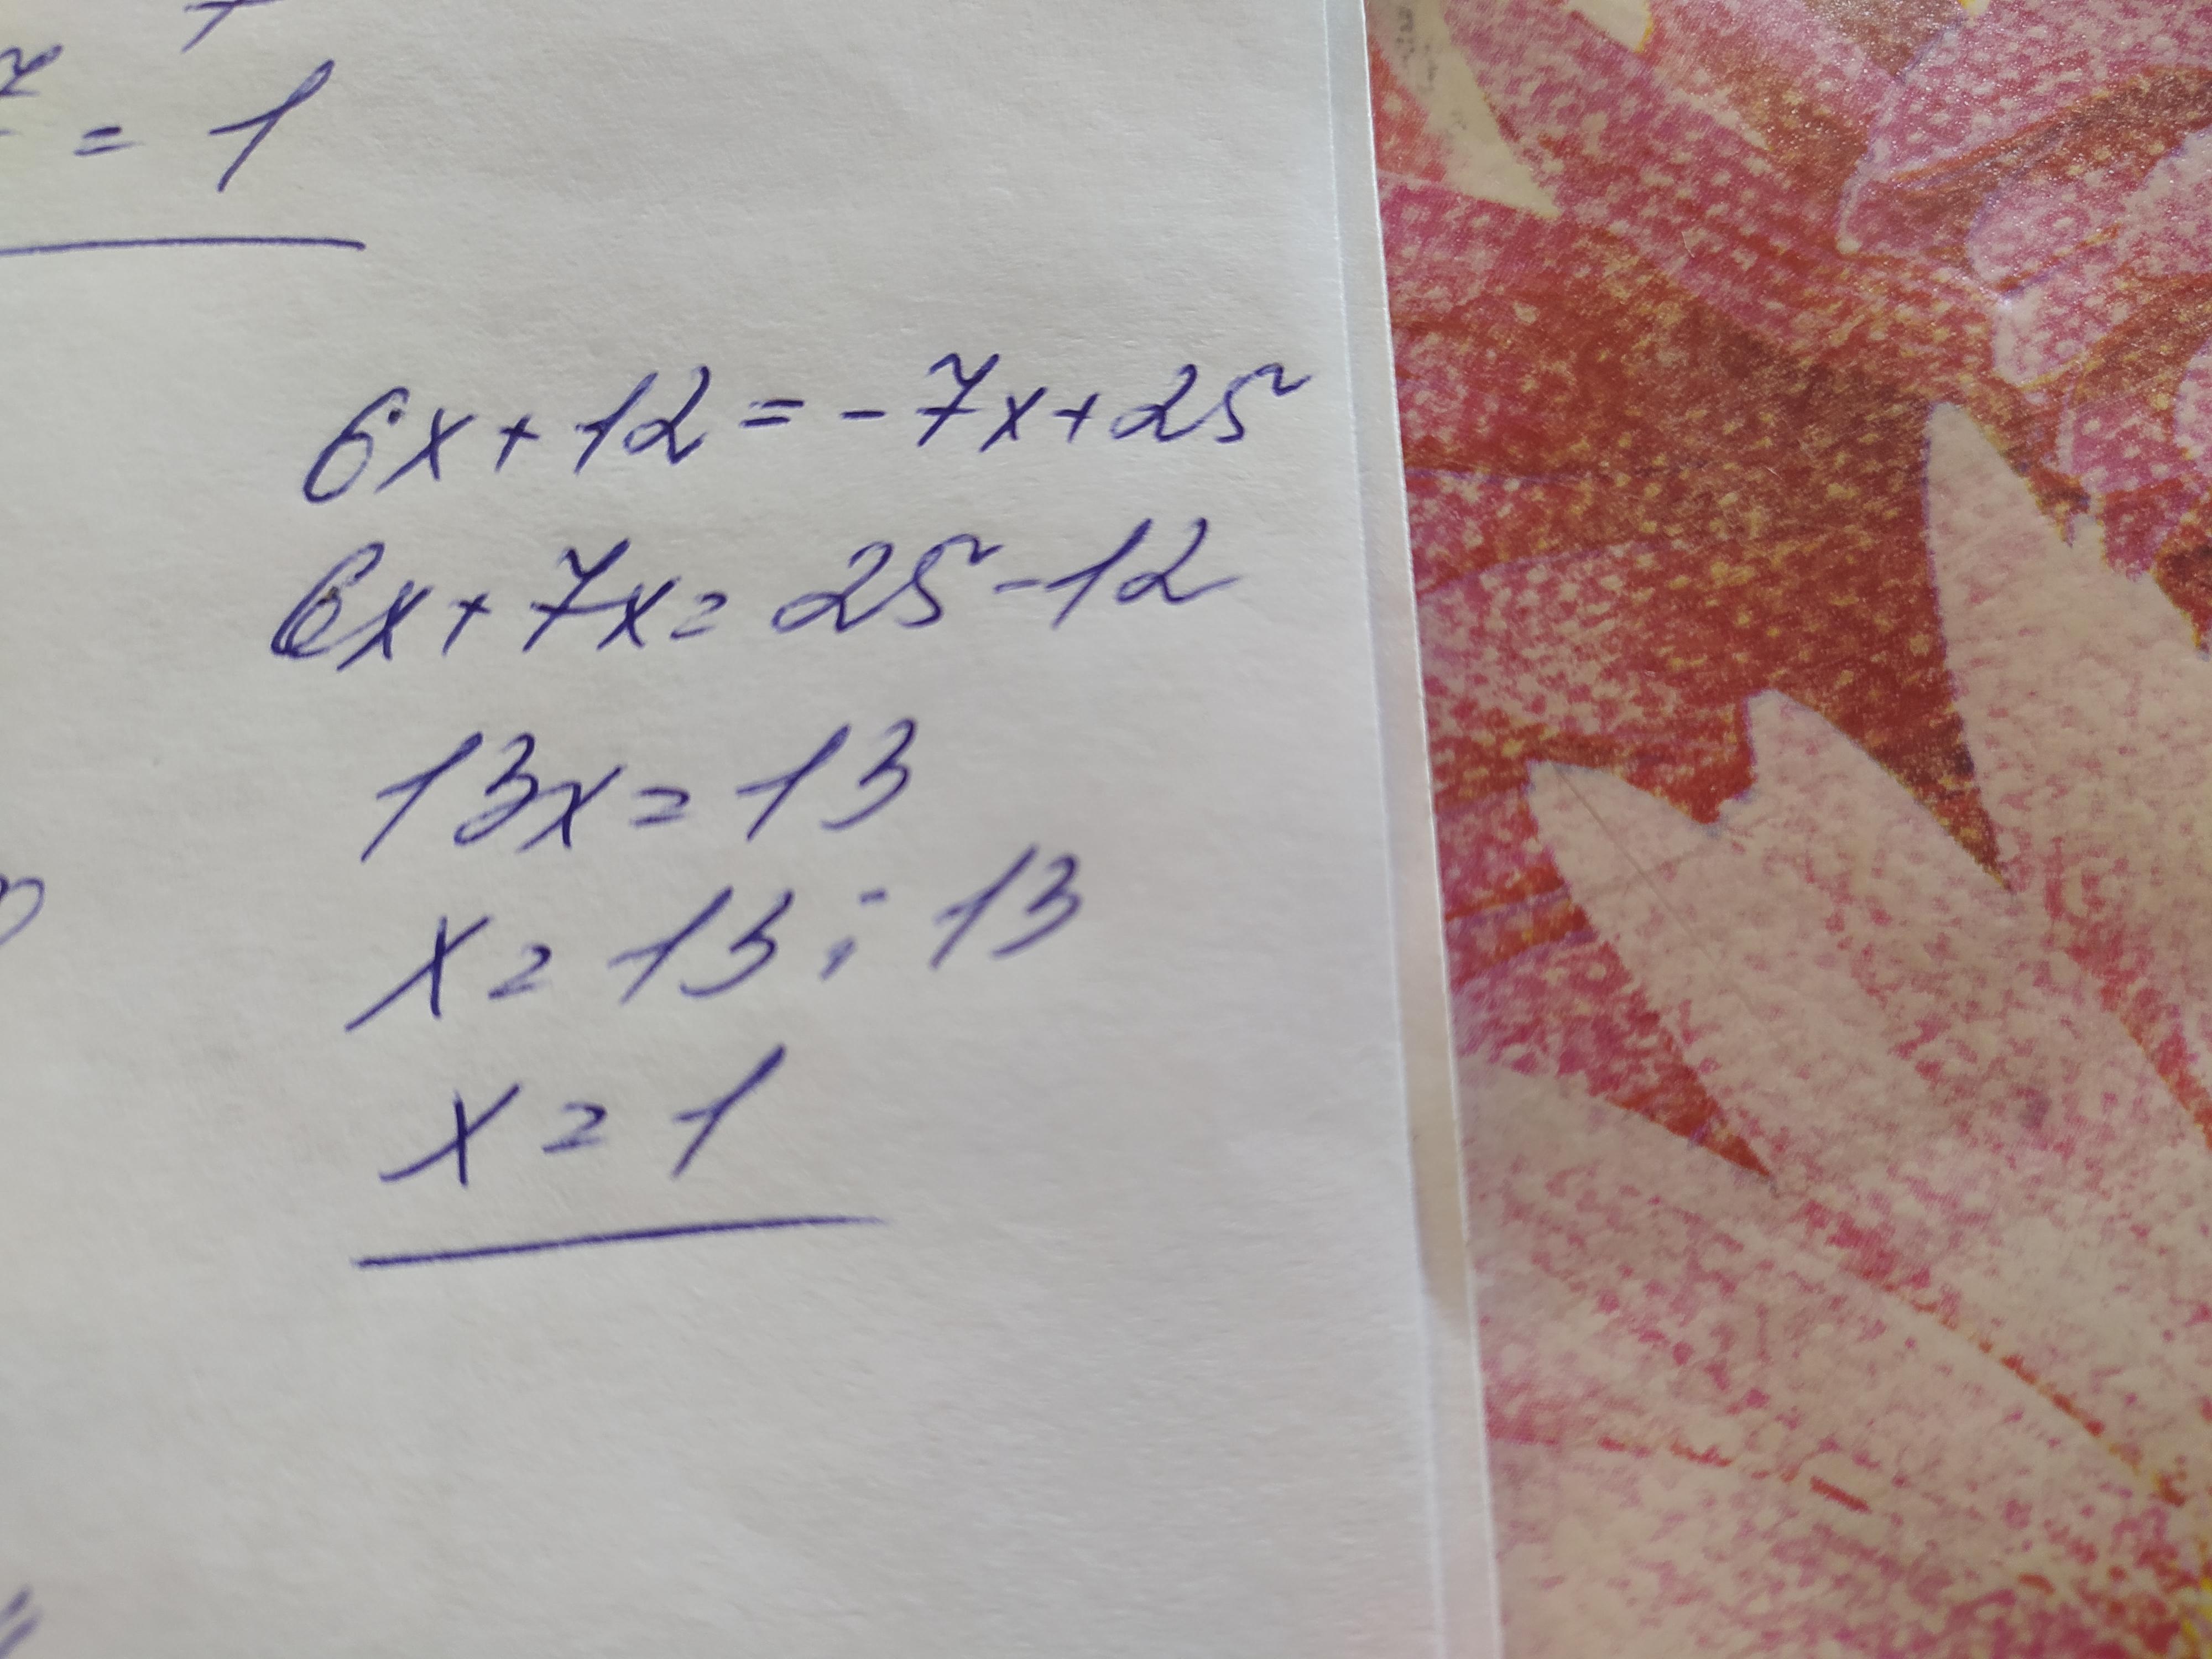 = 1
6x + 12 = - 7x + 25
6x + 7x = 25 - 12
13x = 13
x = 13 : 13
x = 1